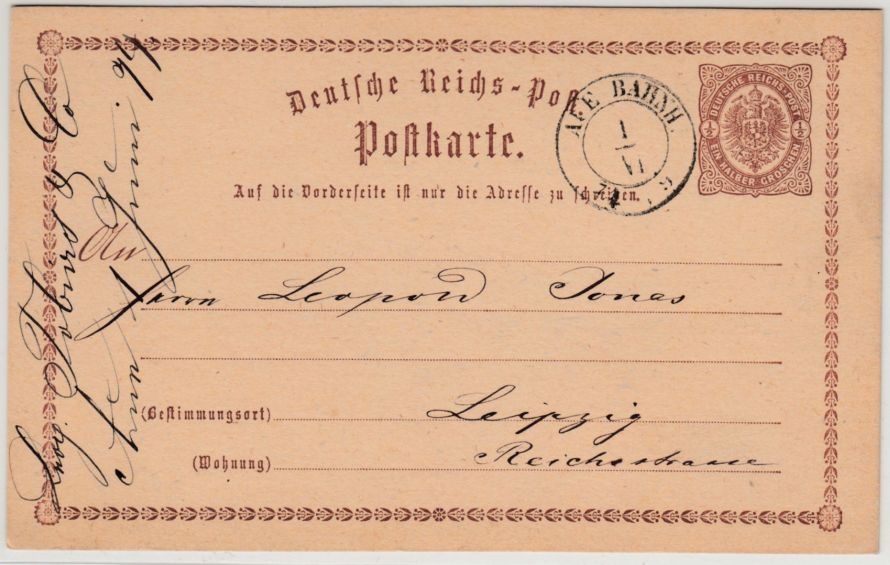 Deutsche Reichs-Post
Postkarte.
Auf die Vorderseite ist nur die Adresse zu schreiben.
DEUTSCHE REICHS-POST
½ ½
EIN HALBER GROSCHEN
AFE BAHNH.
1
VI
An
Herrn Leopold Jonas
(Bestimmungsort) Leipzig
(Wohnung) Reichsstrasse
& Co